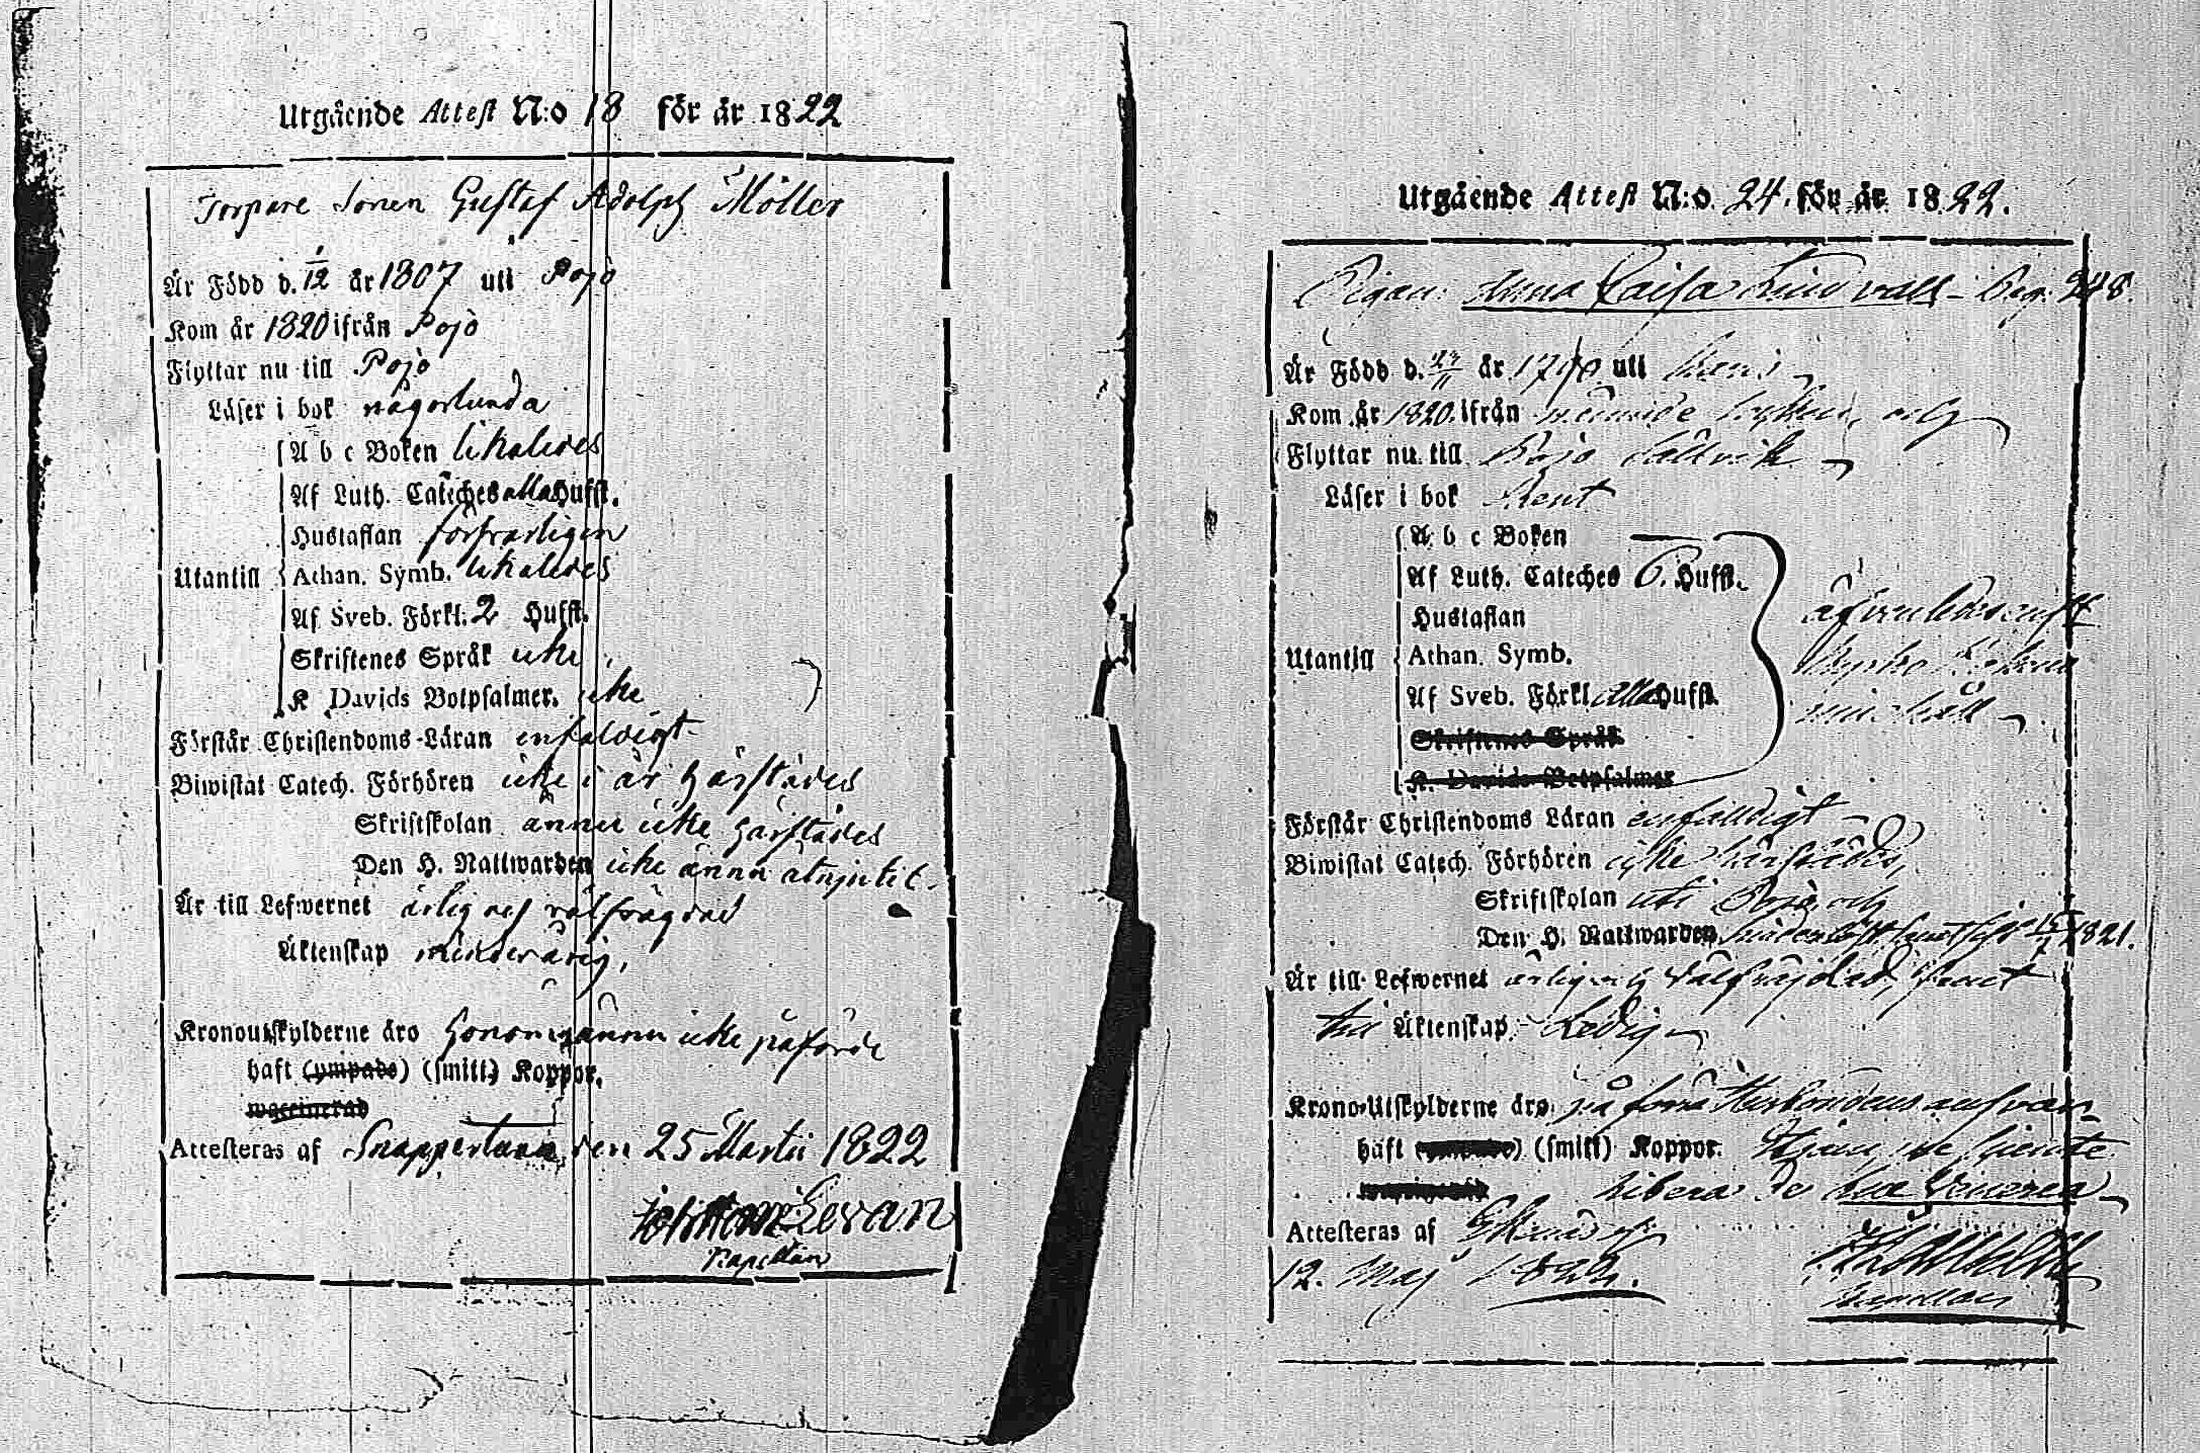 Utgående Attest N:o 18 för år 1822
Torpare Sonen Gustaf Adolph Möller
Är Född d. 1/12 år 1807 uti Pojo
Kom år 1820 ifrån Pojo
Flyttar nu till Pojo
Läser i bok någorlunda
A b c Boken likaledes
Af Luth. Cateches alla Hufst.
Hustaflan försvarligen
Utantill Athan. Symb. likaledes
Af Sveb. Förkl. 2 Hufst.
Skriftenes Språk icke
K Davids Botpsalmer. icke
Förstår Christendoms-Läran enfaldigt
Biwistat Catech. Förhören icke i år härstädes
Skriftskolan ännu icke härstädes
Den H. Nattwarden icke ännu åtnjutit.
Är till Lefwernet ärlig och välfrägdad
Äktenskap minderårig,
Kronoutskylderne äro honom ännu icke påförde
haft (ympade) (smitt) Koppor.
waccinerad
Attesteras af Snappertuna den 25 Martii 1822
Levan
Kapellan
Utgående Attest N:o 24. för år 1822.
Pigan Anna Caisa Lindvall - Pag. 248.
Är Född d. år uti
Kom år 1820 ifrån och
Flyttar nu till Pojo
Läser i bok Rent
A b c Boken
Af Luth. Cateches 6. Hufst.
Hustaflan
Utantill Athan. Symb.
Af Sveb. Förkl. alla Hufst.
Skriftenes Språk
K. Davids Botpsalmer
Förstår Christendoms Läran enfaldigt
Biwistat Catech. Förhören icke härstädes,
Skriftskolan uti Pojo och
Den H. Nattwarden 1821.
Är till Lefwernet ärlig och välfräjdad, samt
till Äktenskap - Ledig
Krono-Utskylderne äro på förra Husbondens ansvar
haft (smitt) Koppor.
libera de lue Venerea
Attesteras af Ekenäs
12. Maj 1822.
Kapellan